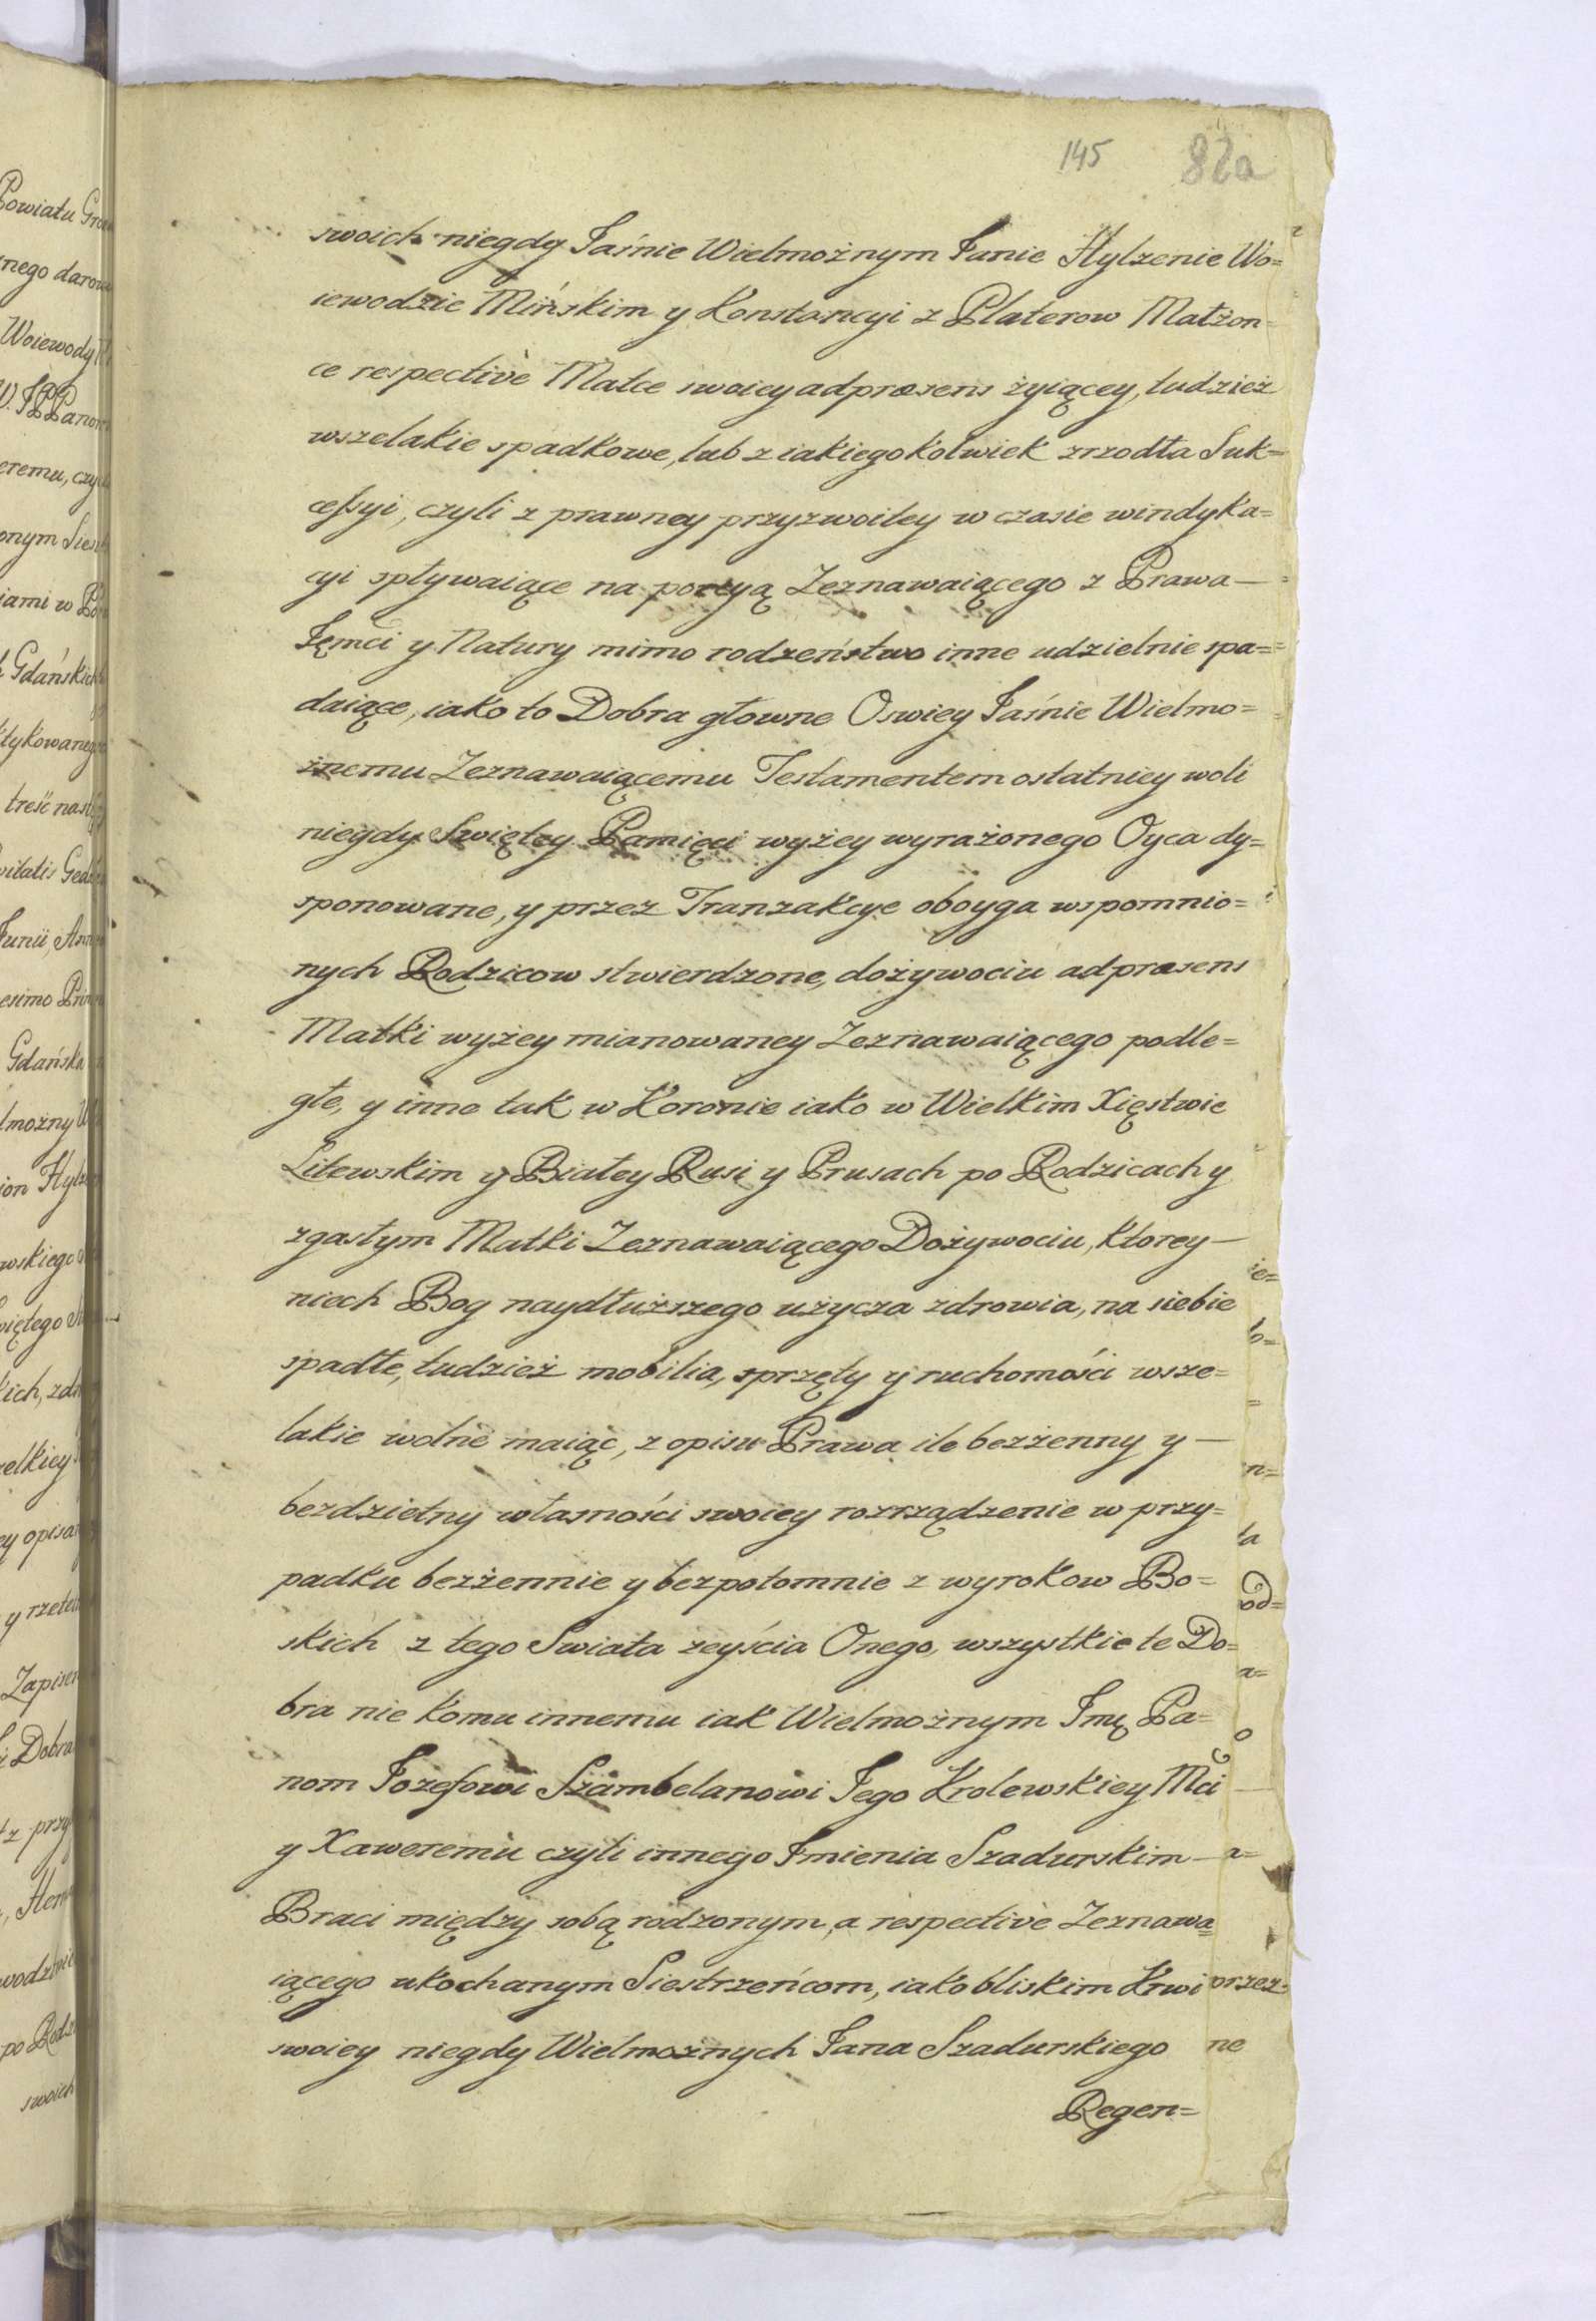 145 82a
swoich niegdy Jaśnie Wielmożnym Janie Hylzenie Wo=
iewodzie Mińskim y Konstancyi z Platerow Małżon=
ce respectivè Matce swoiey adpræsens żyiącey, tudzież
wszelakie spadkowe, lub z iakiegokolwiek zrzodła Suk=
cessyi, czyli z prawney przyzwoitey w czasie windyka=
cyi spływaiące na porcyą Zeznawaiącego z Prawa —
Jęmci y Natury mimo rodzeństwo inne udzielnie spa=
daiące, iako to Dobra głowne Oswiey Jaśnie Wielmo=
żnemu Zeznawaiącemu Testamentem ostatniey woli
niegdy Swiętey Pamięci wyżey wyrażonego Oyca dy=
sponowane, y przez Tranzakcye oboyga wspomnio=
nych Rodzicow stwierdzone, dożywociu adpræsens
Matki wyżey mianowaney Zeznawaiącego podle=
głe, y inne tak w Koronie iako w Wielkim Xięstwie
Litewskim y Białey Rusi y Prusach po Rodzicach y
zgasłym Matki Zeznawaiącego Dożywociu, ktorey —
niech Bog naydłuższego użycza zdrowia, na siebie
spadłe, tudzież mobilia, sprzęty y ruchomości wsze=
lakie wolne maiąc, z opisu Prawa ile bezżenny y —
bezdzietny własności swoiey rozrządzenie w przy=
padku bezżennie y bezpotomnie z wyrokow Bo=
skich z tego Swiata zeyścia Onego, wszystkie te Do=
bra nie komu innemu iak Wielmożnym Jmę Pa=
nom Jozefowi Szambelanowi Jego Krolewskiey Mci
y Xaweremu czyli innego Jmienia Szadurskim —
Braci między sobą rodzonym, a respectivè Zeznawa=
iącego ukochanym Siestrzeńcom, iako bliskim Krwi
swoiey niegdy Wielmożnych Jana Szadurskiego
Regen=